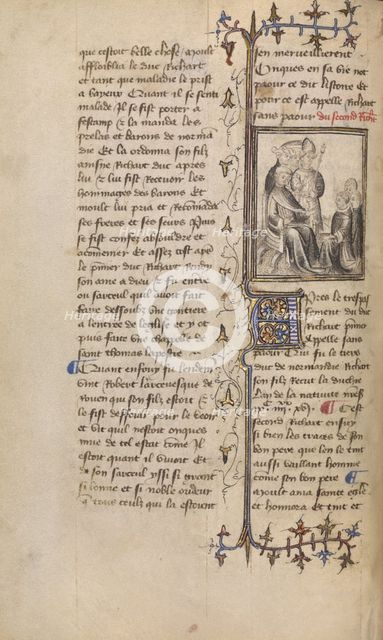 que cestoit belle chose apoulz
affoiblia le duc Richart
et tant que maladie le prist
a baieux Et quant il se senti
malade Il se fist porter a
fescamp Et la manda les
prelas et barons de norma
die Et la ordonna son filz
aisne Richart duc apres
lui Et lui fist recevoir les
hommages des barons Et
moult lui pria et recomanda
ses freres et ses seurs Puis
se fist confez absouldre et
acomenier Et assez tost apres
le pmier duc Richart rendy
son ame a dieu Et fu enterre
ou sarceul quil avoit fait
faire dessoubz une goutiere
a lentree de leglise et y est
puis faite une chappelle de
saint thomas apostre
Quant enfouy fu lendem
vint Robert larcevesque de
Rouen qui son filz estoit Et
le fist deffouir pour le veoir
et vit quil nestoit onques
mue de tel estat come Il
estoit quant il vivoit Et
de son sarceul yssi si grant
si bonne et si noble oudeur
que tous ceulz qui la estoient
sen merveillierent
Onques en sa vie not
paour ce dit listoire et
pour ce est appelle Richart
sans paour du second Rich
Apres le trespas
sement du duc
Richart pmier
Appelle sans
paour Qui fu le tiers
duc de normandie Richart
son filz Recut la duchee
Lan de la nativite nres
Cest
second Richart ensuy
si bien les traces de son
bon pere que len le tint
aussi vaillant homme
come son bon pere Et
moult ama sainte eglise
et honnora Et tint et